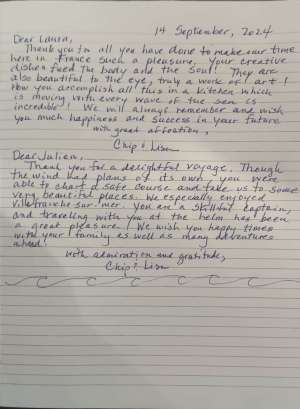 14 September, 2024
Dear Laura,
Thank you for all you have done to make our time
here in France such a pleasure. Your creative
dishes feed the body and the soul! They are
also beautiful to the eye, truly a work of art!
How you accomplish all this in a kitchen which
is moving with every wave of the sea is
incredible!! We will always remember and wish
you much happiness and success in your future
with great affection,
Chip & Lisa
Dear Julien,
Thank you for a delightful voyage. Though
the wind had plans of its own, you were
able to chart a safe course and take us to some
very beautiful places. We especially enjoyed
Villefranche-sur-mer. You are a skillful captain,
and traveling with you at the helm has been
a great pleasure. We wish you happy times
with your family as well as many adventures
ahead!
with admiration and gratitude,
Chip & Lisa